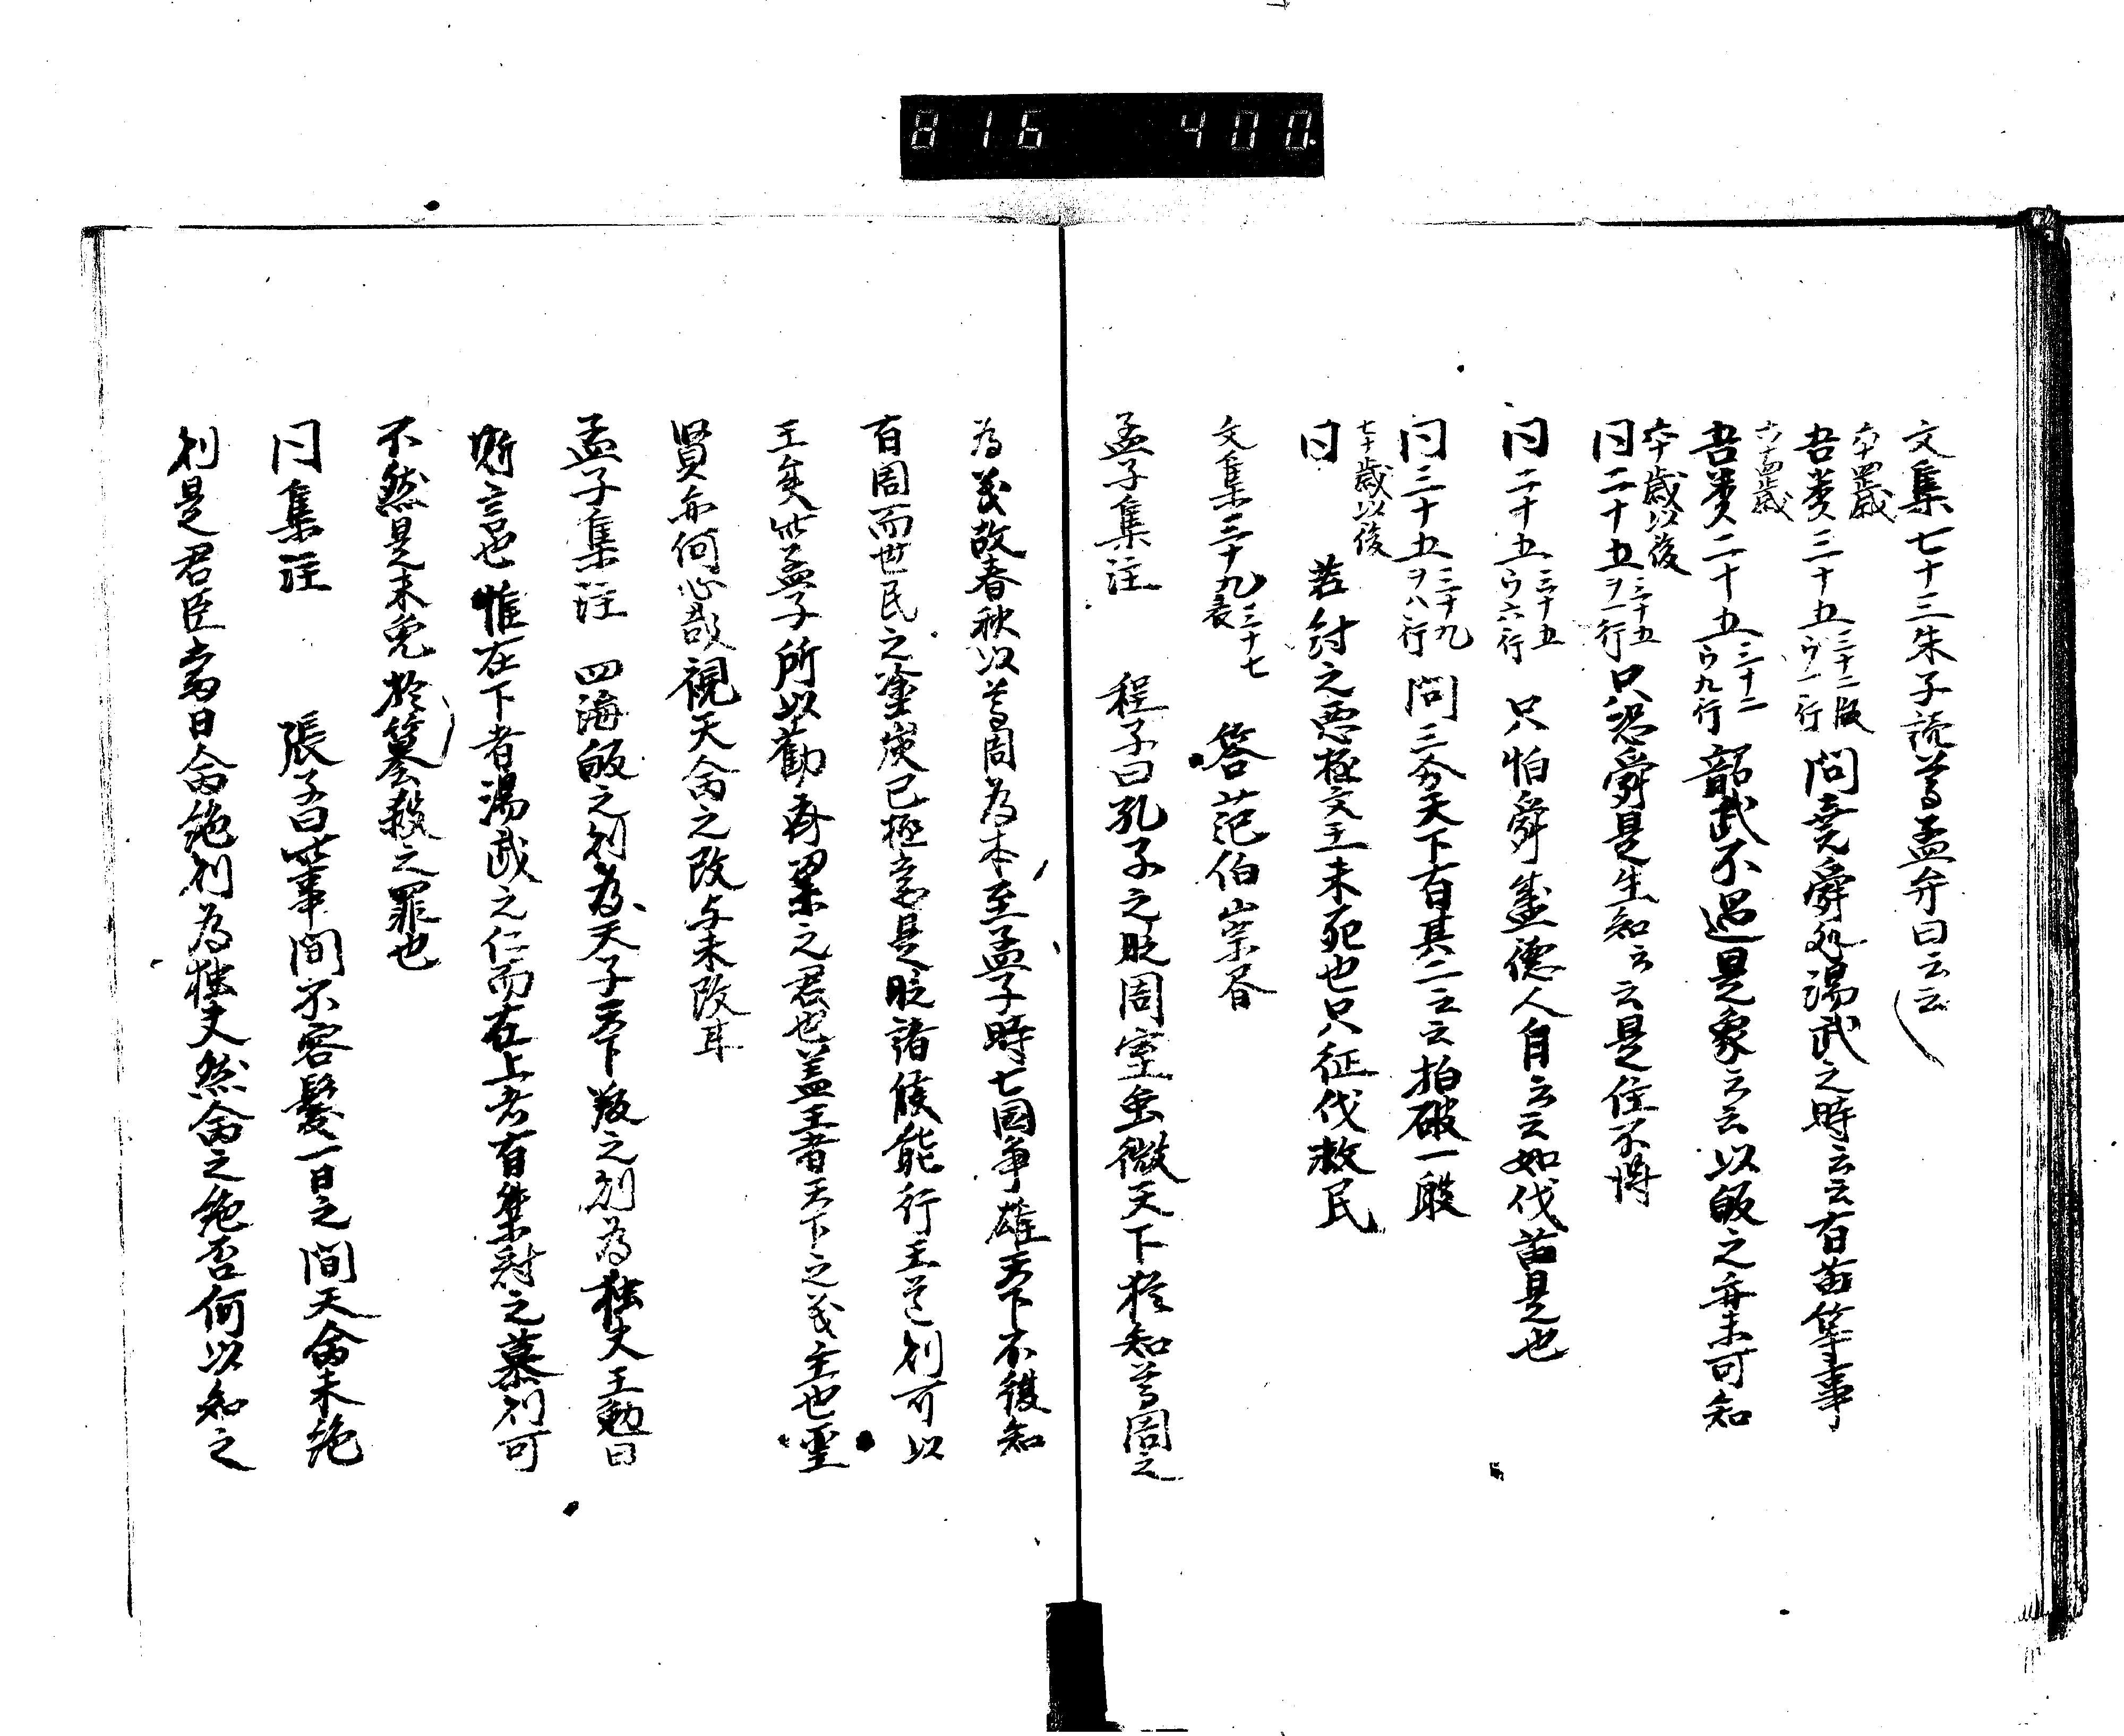 816 400.
文集七十三朱子読尊孟弁曰云云
六十四歳
吾類三十五 三十二版 ウ一行 問堯舜処湯武之時云云有苗等事
六十四歳
吾類二十五 三十二 ウ九行 韶武不過是象云云以皈之再未可知
六十歳以後
同二十五 三十五 ヲ一行 只恐舜是生知云云是住不得
同二十五 三十五 ウ六行 只怕舜盛徳人自云云如伐苗是也
同三十五 三十九 ヲ八行 問三分天下有其二云云拍破一般
七十歳以後
同 若紂之悪極文王未死也只征伐救民
文集三十九 三十七 表 答范伯崇眷
孟子集注 程子曰孔子之时周室虽微天下猶知尊周之
為義故春秋以尊周為本至孟子時七国争雄天下不復知
有周而世民之塗炭已極當是时諸侯能行王道則可以
王矣此孟子所以勸斉梁之君也蓋王者天下之義主也聖
賢亦何心哉視天命之改与未改耳
孟子集注 四海皈之則為天子天下叛之則為独夫王勉曰
斯言也惟在下者湯武之仁而在上者有桀紂之暴則可
不然是未免於簒殺之罪也
同集註 張子曰此事間不容髪一日之間天命未絶
則是君臣當日命絶則為独夫然命之絶否何以知之